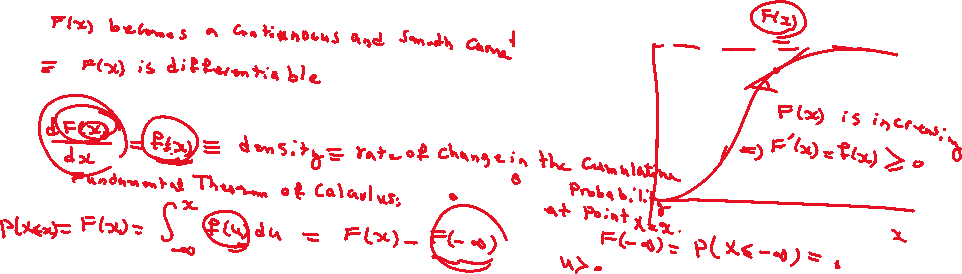 F(x) becomes a continuous and smooth curve
≡ F(x) is differentiable
dF(x)/dx = f(x) ≡ density ≡ rate of change in the cumulative
Probability
at point X=x.
Fundamental Theorem of Calculus:
P(X≤x) = F(x) = ∫_{-∞}^{x} f(u) du = F(x) - F(-∞)
F(x)
1
F(x) is increasing
=> F'(x) = f(x) ≥ 0
x
F(-∞) = P(X≤-∞) =